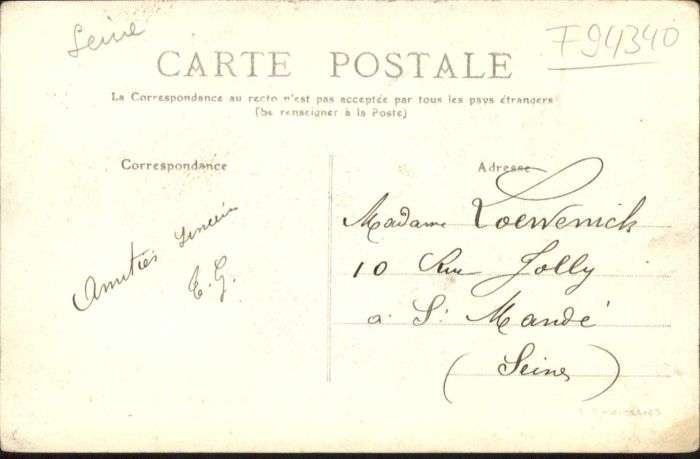 Seine
F94340
CARTE POSTALE
La Correspondance au recto n'est pas acceptée par tous les pays étrangers
(Se renseigner à la Poste)
Correspondance
Amitiés
E. G.
Adresse
Madame Loewenick
10 Rue Jolly
a St Mandé
(Seine)